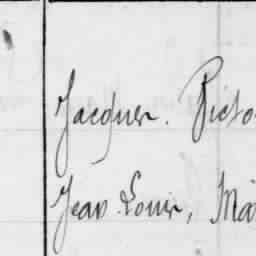 Jacques. Victo
Jean Louis, Ma